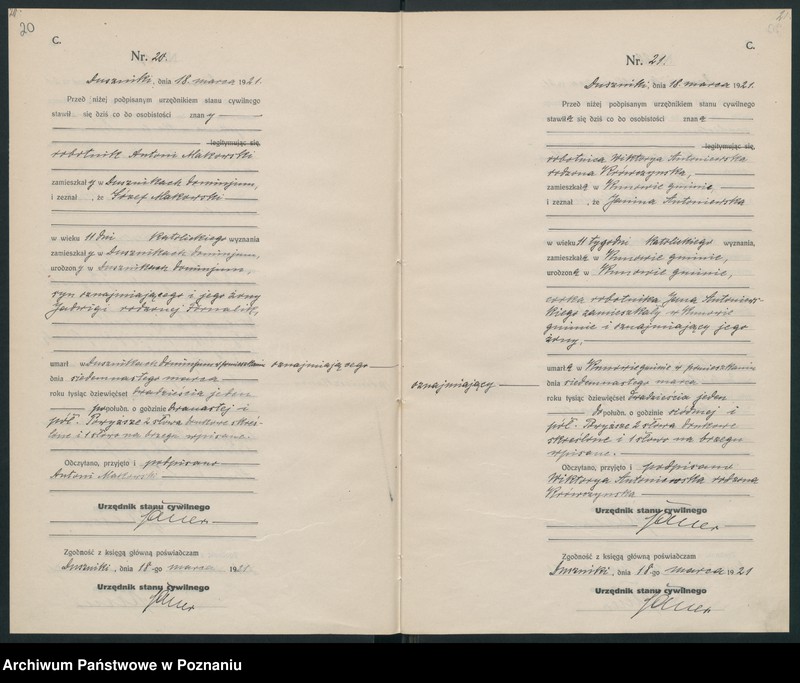 20
C.
Nr. 20.
Duszniki, dnia 18. marca 1921.
Przed niżej podpisanym urzędnikiem stanu cywilnego
stawił się dziś co do osobistości znany
legitymując się,
robotnik Antoni Makowski
zamieszkały w Dusznikach dominjum,
i zeznał, że Józef Makowski
w wieku 11 dni katolickiego wyznania
zamieszkały w Dusznikach dominjum,
urodzony w Dusznikach dominjum,
syn oznajmiającego i jego żony
Jadwigi rodzonej
umarł w Dusznikach dominjum w pomieszkaniu oznajmiającego
dnia siedemnastego marca
roku tysiąc dziewięćset dwadzieścia jeden
popołudn. o godzinie dwunastej i
pół. Powyższe 2 słowa drukowe skreś-
lone i 1 słowo na brzegu wpisane.
Odczytano, przyjęto i podpisano
Antoni
Urzędnik stanu cywilnego
Zgodność z księgą główną poświadczam
Duszniki, dnia 18-go marca 1921
Urzędnik stanu cywilnego
C.
Nr. 21.
Duszniki, dnia 18. marca 1921.
Przed niżej podpisanym urzędnikiem stanu cywilnego
stawiła się dziś co do osobistości znana
legitymując się,
robotnica Wiktorya Antoniewska
rodzona Krówczynska,
zamieszkała w Wnowie gminie,
i zeznał, że Janina Antoniewska
w wieku 11 tygodni katolickiego wyznania,
zamieszkała w Wnowie gminie,
urodzona w Wnowie gminie,
córka robotnika Jana Antoniews-
kiego zamieszkały w Wnowie
gminie i oznajmiający jego
żony,
umarła w Wnowie gminie w pomieszkaniu
oznajmiający
dnia siedemnastego marca
roku tysiąc dziewięćset dwadzieścia jeden
dopołudn. o godzinie siódmej i
pół. Powyższe 2 słowa drukowe
skreślone i 1 słowo na brzegu
wpisane.
Odczytano, przyjęto i podpisano
Wiktorya Antoniewska rodzona
Krówczynska
Urzędnik stanu cywilnego
Zgodność z księgą główną poświadczam
Duszniki, dnia 18-go marca 1921
Urzędnik stanu cywilnego
Archiwum Państwowe w Poznaniu